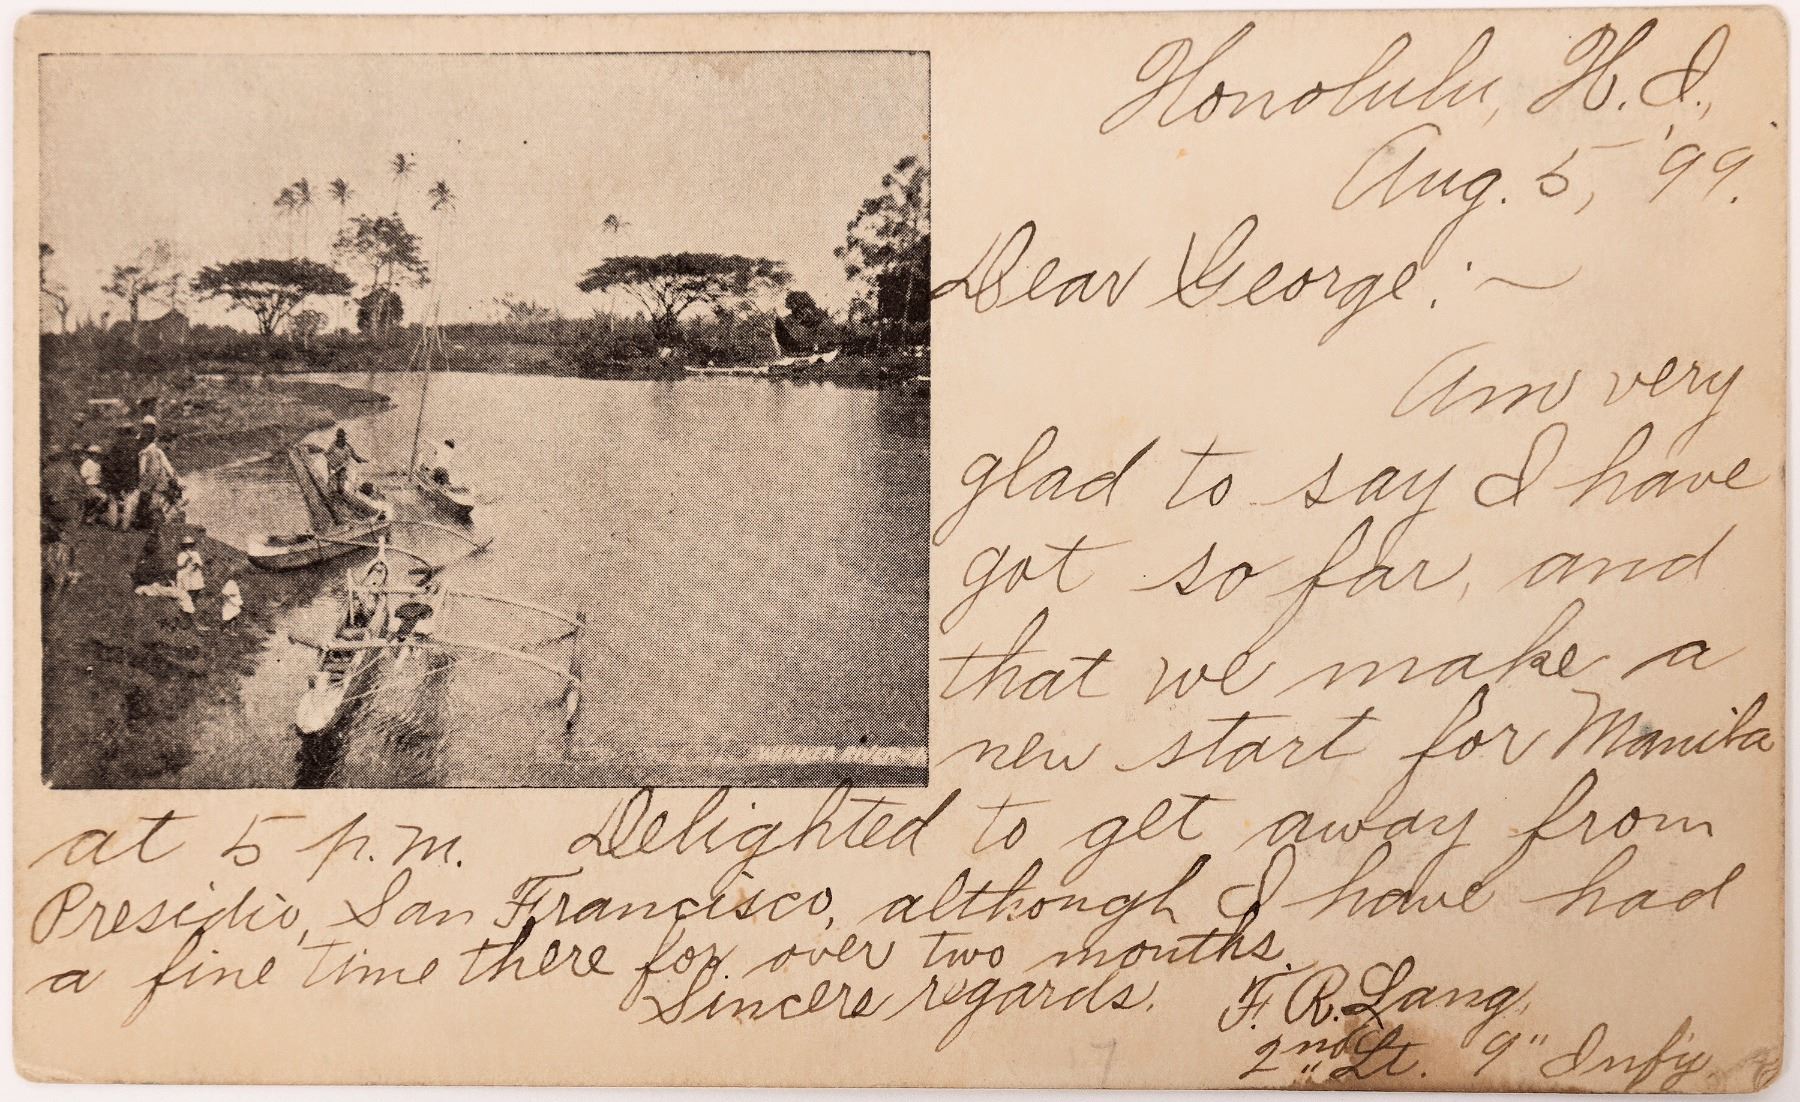 Honolulu, H.I.,
Aug. 5, '99.
Dear George:~
Am very
glad to say I have
got so far, and
that we make a
new start for Manila
at 5 p.m. Delighted to get away from
Presidio, San Francisco, although I have had
a fine time there for over two months.
Sincere regards. F. R. Lang,
2nd Lt. 9" Infy.
17